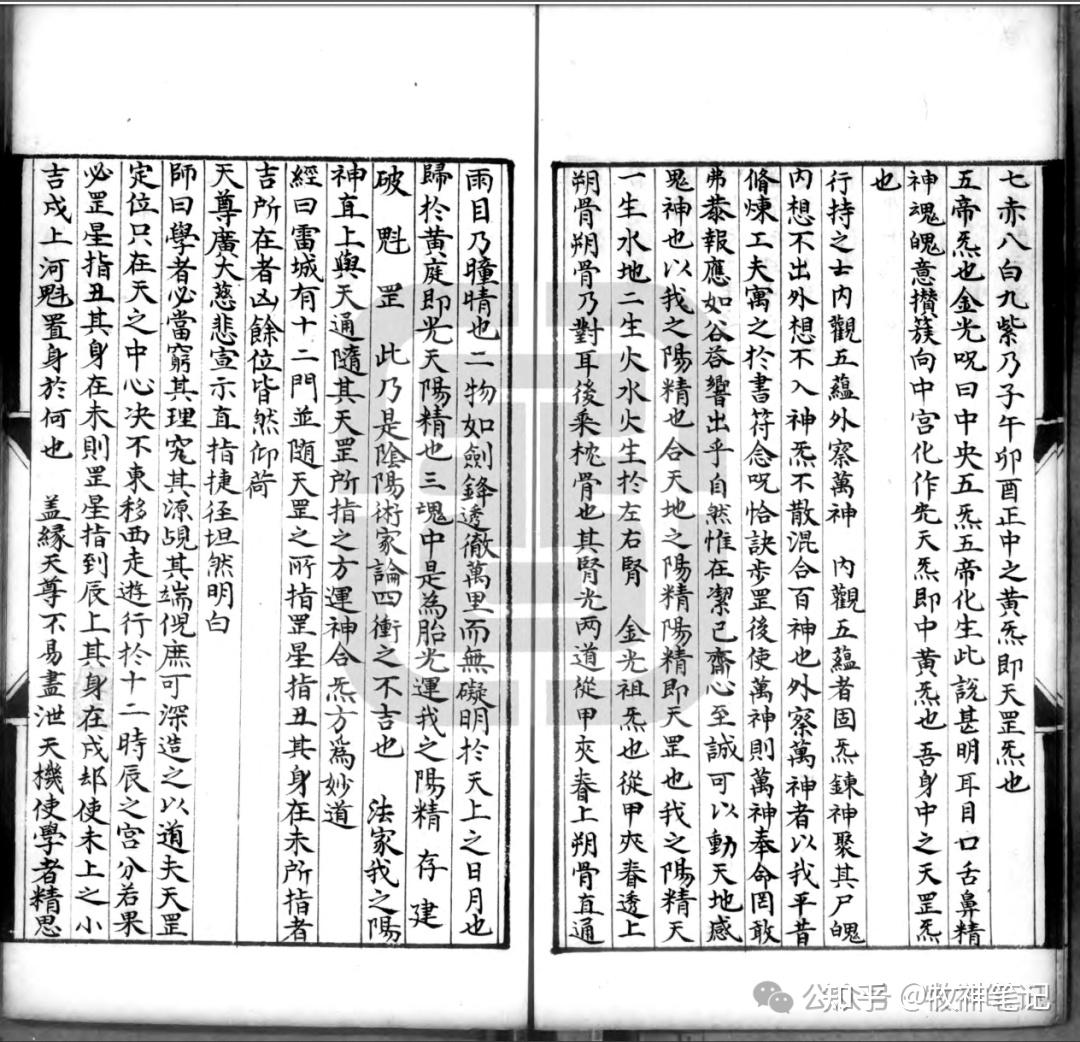 七赤八白九紫乃子午卯酉正中之黄炁即天罡炁也
五帝炁也金光呪曰中央五炁五帝化生此説甚明耳目口舌鼻精
神魂魄意攅簇向中宫化作先天炁即中黄炁也吾身中之天罡炁
也
行持之士内觀五藴外察萬神　内觀五藴者固炁鍊神聚其尸魄
内想不出外想不入神炁不散混合百神也外察萬神者以我平昔
脩煉工夫寓之於書符念呪恰訣歩罡後使萬神則萬神奉命罔敢
弗恭報應如谷答響出乎自然惟在潔己齋心至誠可以動天地感
鬼神也以我之陽精也合天地之陽精陽精即天罡也我之陽精天
一生水地二生火水火生於左右腎　金光祖炁也從甲夾眷透上
朔骨朔骨乃對耳後乘枕骨也其腎光两道從甲夾眷上朔骨直通
雨目乃瞳睛也二物如劍鋒透徹萬里而無礙明於天上之日月也
歸於黄庭即光天陽精也三塊中是為胎光運我之陽精　存　建
破　魁　罡　此乃是陰陽術家論四衝之不吉也　法家我之陽
神直上與天通隨其天罡所指之方運神合炁方爲妙道
經曰雷城有十二門並随天罡之所指罡星指丑其身在未所指者
吉所在者凶餘位皆然仰荷
天尊廣大慈悲宣示直指捷徑坦然明白
師曰學者必當窮其理究其源覘其端倪庶可深造之以道夫天罡
定位只在天之中心决不東移西走遊行於十二時辰之宫分若果
必罡星指丑其身在未則罡星指到辰上其身在戌却使未上之小
吉戌上河魁置身於何也　盖縁天尊不易盡泄天機使學者精思
公知乎 @牧神笔记